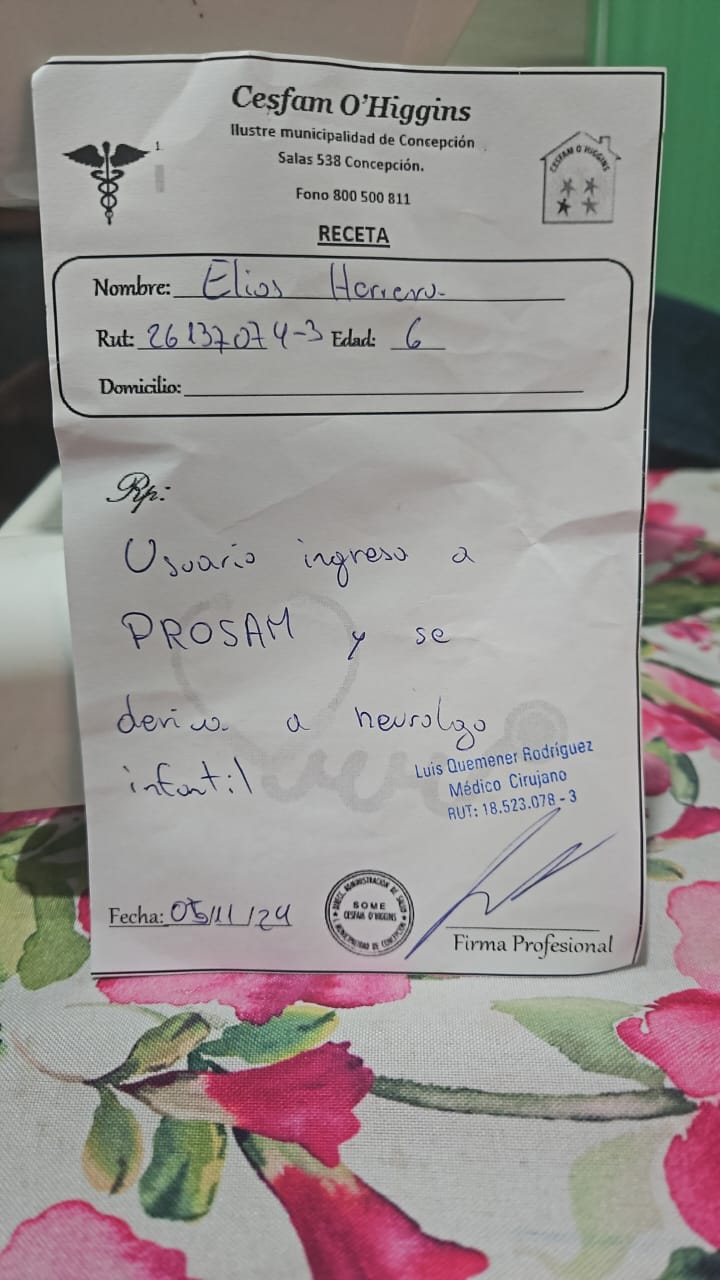 Cesfam O'Higgins
Ilustre municipalidad de Concepción
Salas 538 Concepción.
Fono 800 500 811
CESFAM O'HIGGINS
RECETA
Nombre: Elios Herrera
Rut: 26137074-3 Edad: 6
Domicilio:
Rp:
Usuario ingreso a
PROSAM y se
deriva a neurolgo
infantil
Luis Quemener Rodríguez
Médico Cirujano
RUT: 18.523.078-3
Fecha: 05/11/24
DIRECC. ADMINISTRACION DE SALUD
SOME
CESFAM O'HIGGINS
I. MUNICIPALIDAD DE CONCEPCION
Firma Profesional